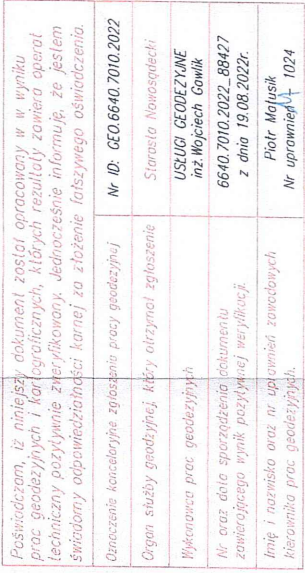 Poświadczam, iż niniejszy dokument został opracowany w w wyniku
prac geodezyjnych i kartograficznych, których rezultaty zawiera operat
techniczny pozytywnie zweryfikowany. Jednocześnie informuję, że jestem
świadomy odpowiedzialności karnej za złożenie fałszywego oświadczenia.
Oznaczenie kancelaryjne zgłoszenia pracy geodezyjnej
Nr ID: GEO.6640.7010.2022
Organ służby geodzyjnej, który otrzymał zgłoszenie
Starosta Nowosądecki
Wykonawca prac geodezyjnych
USŁUGI GEODEZYJNE
inż.Wojciech Gawlik
Nr oraz data sporządzenia dokumentu
zawierającego wynik pozytywnej weryfikacji.
6640.7010.2022_88427
z dnia 19.08.2022r.
Imię i nazwisko oraz nr uprawnień zawodowych
kierownika prac geodezyjnych.
Piotr Matusik
Nr uprawnień - 1024